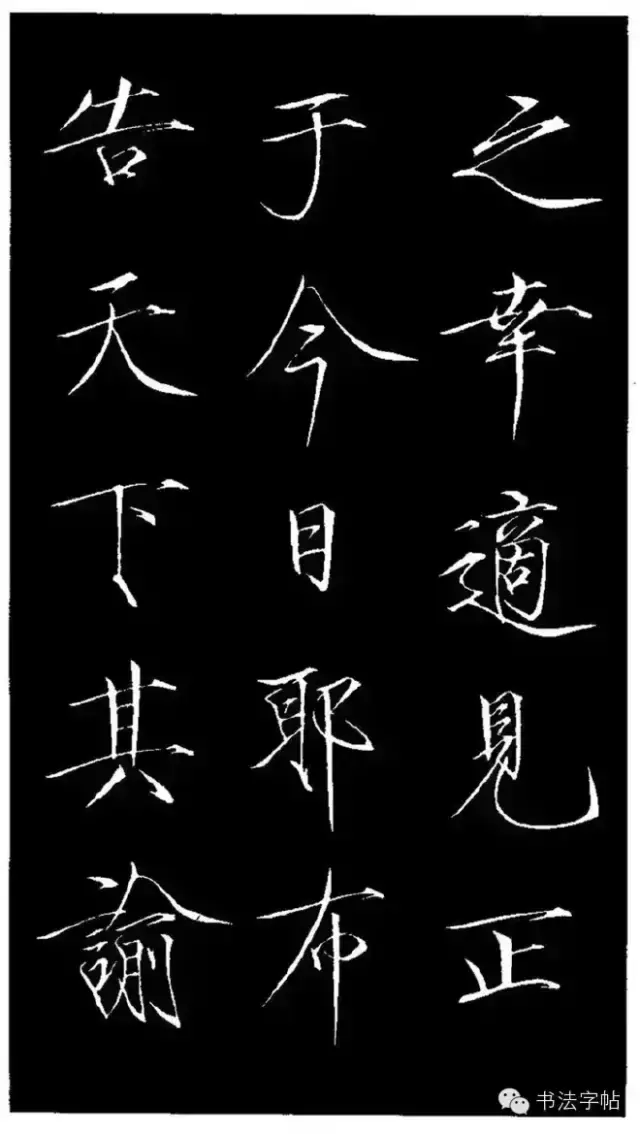 之幸適見正
于今日耶布
告天下其諭
书法字帖